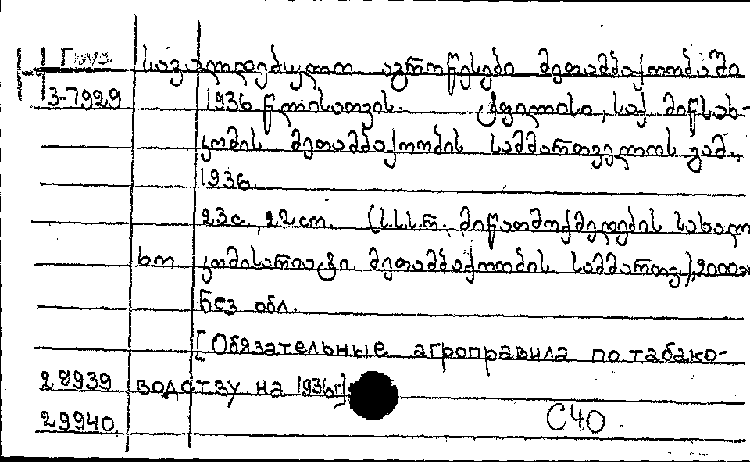 Груз. სავალდებულო აგროწესები მეთამბაქოობაში
3-7929 1936 წლისათვის. ტფილისი, საქ. მიწსახ-
კომის მეთამბაქოობის სამმართველოს გამ.,
1936.
23с. 22 cm. (ს.ს.ს.რ. მიწათმოქმედების სახალ
ხო კომისარიატი მეთამბაქოობის სამმართვ.), 2000
Без обл.
[Обязательные агроправила по табако-
28939 водству на 1936г]
29940. С40.